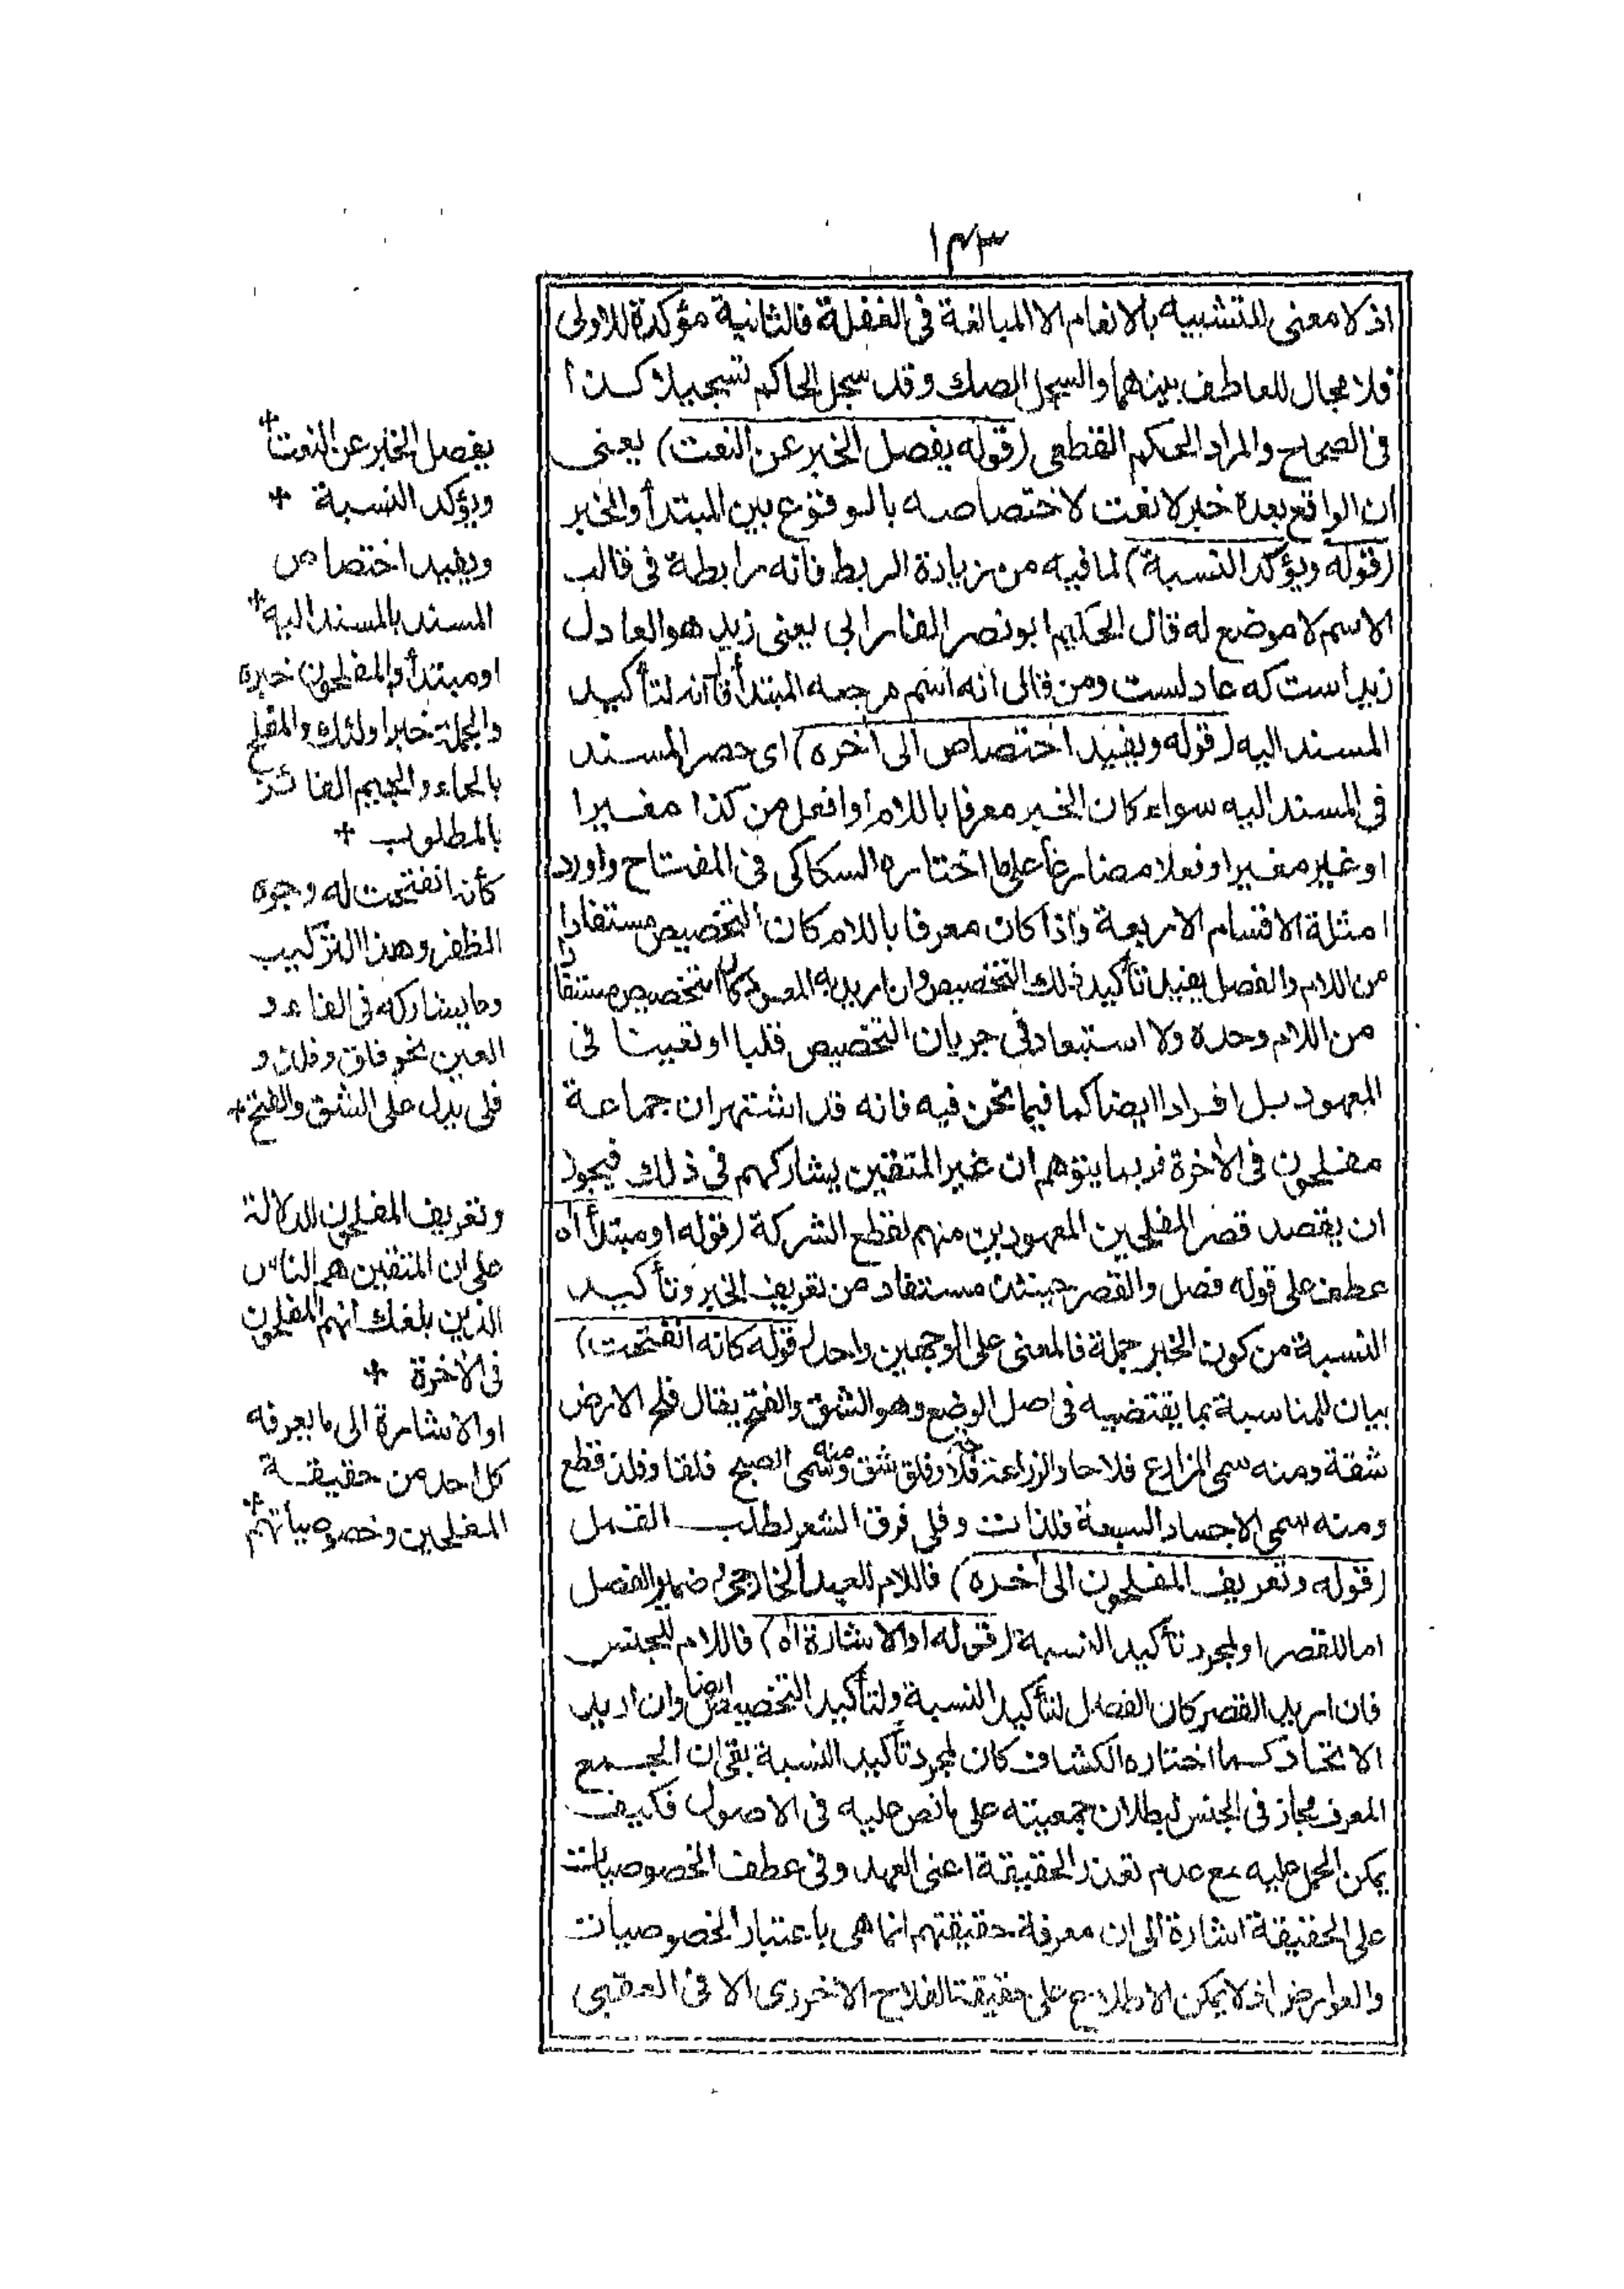 ١٤٣
اذ لا معنى للتشبيه بالانعام الا المبالغة فى الغفلة فالثانية مؤكدة للاولى
فلا مجال للعاطف بينهما والسجل الصك وقد سجل الحاكم تسجيلا كذا
فى الصحاح والمراد الحكم القطعى (قوله يفصل الخبر عن النعت) يعنى
ان الواقع بعده خبر لا نعت لاختصاصه بالوقوع بين المبتدأ والخبر
(قوله ويؤكد النسبة) لما فيه من زيادة الربط فانه رابطة فى قالب
الاسم لا موضع له قال الحكيم ابو نصر الفارابى يعنى زيد هو العادل
زيد است كه عادلست ومن قال انه اسم مرجعه المبتدأ قال انه لتأكيد
المسند اليه (قوله ويفيد اختصاص الى آخره) اى حصر المسند
فى المسند اليه سواء كان الخبر معرفا باللام او افعل من كذا مغيرا
او غير مغير او فعلا مضارعا على ما اختاره السكاكى فى المفتاح واورد
امثلة الاقسام الاربعة واذا كان معرفا باللام كان التخصيص مستفادا
من اللام والفصل يفيد تأكيد ذلك التخصيص وان اريد به المعهود كان التخصيص مستفادا
من اللام وحده ولا استبعاد فى جريان التخصيص قلبا او تعيينا فى
المعهود بل افرادا ايضا كما فيما نحن فيه فانه قد اشتهر ان جماعة
مفلحون فى الآخرة فربما يتوهم ان غير المتقين يشاركهم فى ذلك فيجوز
ان يقصد قصر المفلحين المعهودين منهم لقطع الشركة (قوله او مبتدأ اه
عطف على قوله فصل والقصر حينئذ مستفاد من تعريف الخبر وتأكيد
النسبة من كون الخبر جملة فالمعنى على الوجهين واحد (قوله كانه انفتحت)
بيان للمناسبة بما يقتضيه فى اصل الوضع وهو الشق والفتح يقال فلح الارض
شقه ومنه سمى الزارع فلاحا والزراعة فلاحة وفلق شق ومنه سمى الصبح فلقا وفلذ قطع
ومنه سمى الاجساد السبعة فلذات وفلى فرق الشعر لطلب القمل
(قوله وتعريف المفلحون الى آخره) فاللام للعهد الخارجى ضمير الفصل
اما للقصر او لمجرد تأكيد النسبة (قوله او الاشارة اه) فاللام للجنس
فان اريد القصر كان الفصل لتأكيد النسبة ولتأكيد التخصيص ايضا وان اريد
الاتحاد كما اختاره الكشاف كان لمجرد تأكيد النسبة بقى ان الجمع
المعرف مجاز فى الجنس لبطلان جمعيته على ما نص عليه فى الاصول فكيف
يمكن الحمل عليه مع عدم تعذر الحقيقة اعنى العهد وفى عطف الخصوصيات
على الحقيقة اشارة الى ان معرفة حقيقتهم انما هى باعتبار الخصوصيات
والعوارض اذ لا يمكن الاطلاع على حقيقة الفلاح الاخروى الا فى العقبى
يفصل الخبر عن النعت +
ويؤكد النسبة +
ويفيد اختصاص
المسند بالمسند اليه +
او مبتدأ والمفلحون خبره
والجملة خبر اولئك والمفلح
بالحاء والجيم الفائز
بالمطلوب +
كأنه انفتحت له وجوه
الظفر وهذا التركيب
وما يشاركه فى الفاء و
العين نحو فلق وفلذ و
فلى يدل على الشق والفتح +
وتعريف المفلحون للدلالة
على ان المتقين هم الناس
الذين بلغك انهم المفلحون
فى الآخرة +
او الاشارة الى ما يعرفه
كل احد من حقيقة
المفلحين وخصوصياتهم +